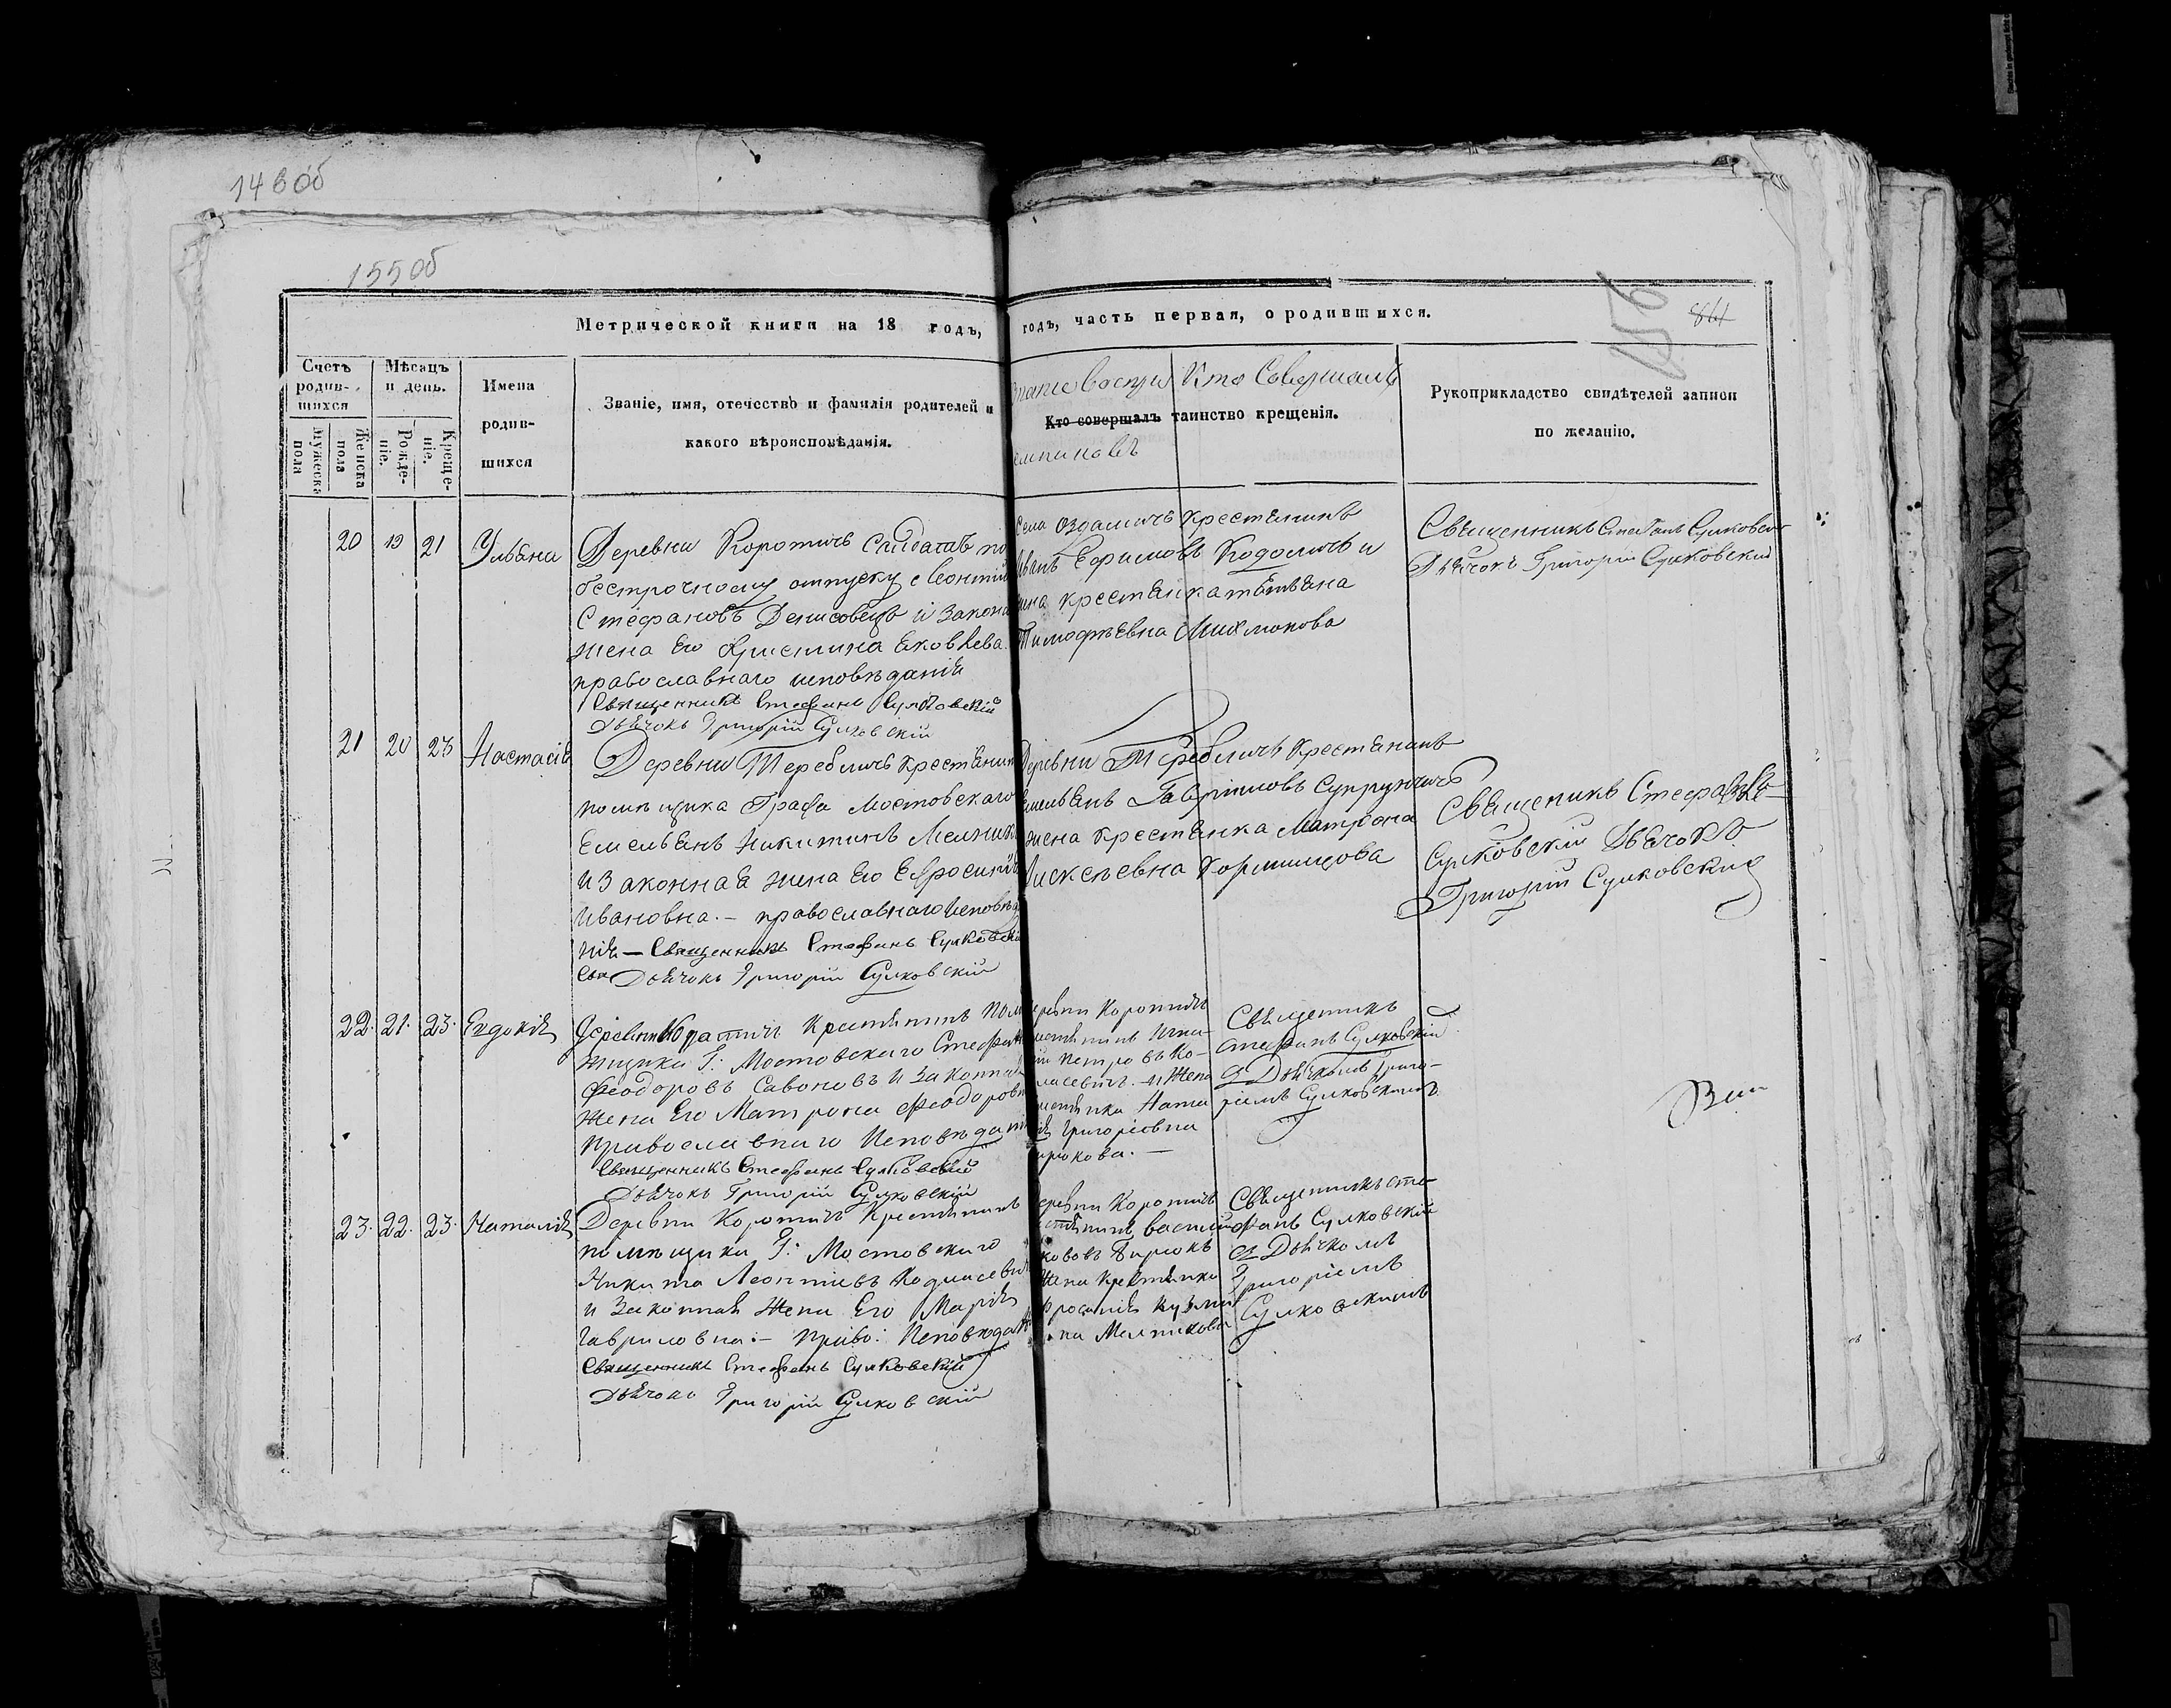 146об
155об
156
861
Метрической книги на 18 годъ,
годъ, часть первая, о родившихся.
Счетъ родив-шихся
Мужеска пола
Женска пола
Мѣсяцъ и день.
Рожде-ніе.
Креще-ніе.
Имена
родив-
шихся
Званіе, имя, отечество и фамилія родителей и
какого вѣроисповѣданія.
Званіе воспри Кто Совершалъ
Кто совершалъ таинство крещенія.
емниковъ
Рукоприкладство свидѣтелей записи
по желанію.
20 19 21 Ульяни
Деревни Коротичъ Салдатъ по
безсрочному отпуску Леонтій
Стефановъ Денисовецъ и закон
жена Его Христина Яковлева
православнаго исповѣданія
Священникъ Стефанъ Сулковскій
Дьячокъ Григорій Сулковскій
Села Оздамичъ Крестянинъ
Иванъ Ефимовъ Кодоличъ и
жена крестянка татьяна
Тимофѣевна Михмокова
Священникъ Стефанъ Сулковск
Дьячокъ Григорій Сулковский
21 20 23 Настасія
Деревни Теребличъ крестянин
помѣщика Графа Мостовскаго
Емельянъ Никитинъ Мелник
и Законная жена Его Евросинія
Ивановна. — православнаго Исповѣд
нія — Священникъ Стефанъ Сулковскі
Дьячокъ Григорій Сулковскій
Деревни Теребличъ Крестянинъ
Емельянъ Гавриловъ Супруничъ
жена крестянка Матрона
Алексѣевна Кормищова
Свяще​никъ Стефанъ
Сулковскій Дьячокъ
Григорій Сулковский
22. 21. 23. Евдокія
Деревни Коратичъ Крестянинъ Пом
щика Г: Мостовскаго Стефан
Феодоровъ Савоновъ и Законная
жена Его Матрона Феодоровн
Православнаго Исповѣдані
Священникъ Стефанъ Сулковскій
Дьячокъ Григорій Сулковскій
еревни Коротичъ
рестянинъ Игна-
ій Петровъ Ко-
ласевичъ. и Жена
рестянка Ната
ія Григоріевна
ирюкова. —
Священникъ
Стефанъ Сулковскій
съ Дьячкомъ Григо-
ріемъ Сулковскимъ
23. 22. 23. Наталія
Деревни Коротичъ Крестянинъ
помѣщика Г: Мостовскаго
Никита Леонтіевъ Кодласевич
и Законная Жена Его Марія
Гавриловна: — Право: Исповѣдан
Священникъ Стефанъ Сулковскій
Дьячокъ Григорій Сулковскій
еревни Коротичъ
естянинъ Василій
ковъ Бирюкъ
Жена Крестянка
фросинія Кузми
на Мелникова
Священникъ Сте-
фанъ Сулковскій
съ Дьячкомъ
Григоріемъ
Сулковскимъ